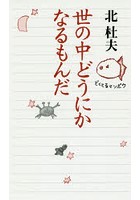 北杜夫
世の中どうにか
なるもんだ
どくとるマンボウ